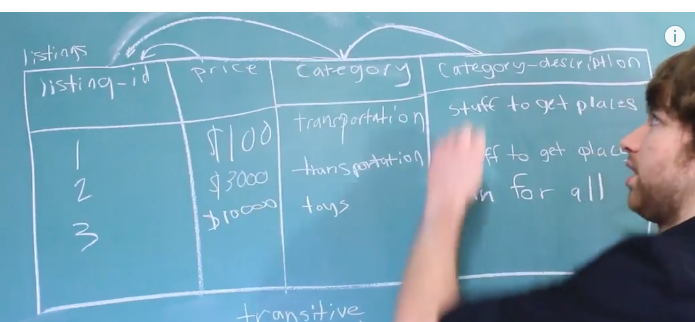 listings
listing-id price category category-description
1 $100 transportation stuff to get places
2 $3000 transportation to get
3 $10000 toys for all
transitive